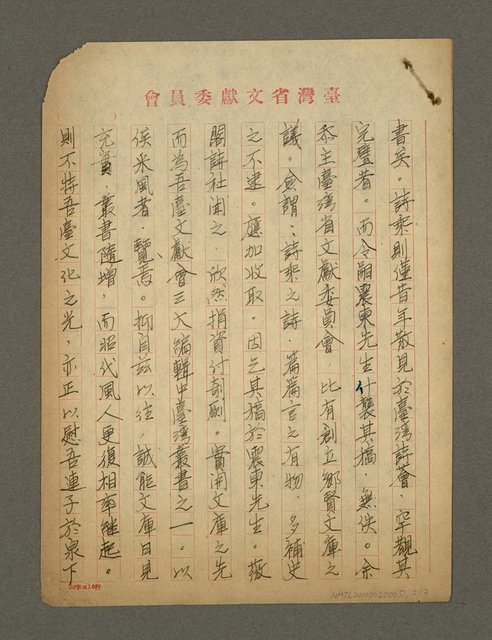 會員委獻文省灣臺
書矣。詩乘則僅昔年散見於臺灣詩薈，罕觀其
完璧者。而令嗣震東先生什襲其稿，無佚。余
忝主臺灣省文獻委員會，比有創立鄉賢文庫之
議。僉謂：詩乘之詩，篇篇言之有物，多補史
之不逮。應加收取。因乞其稿於震東先生。
閣詩社聞之，欣然捐資付剞劂。實開文庫之先
而為吾臺文獻會三大編輯中臺灣叢書之一。以
俟采風者、覽焉。抑自茲以往，誠能文庫日見
充實，叢書隨增，而昭代風人更復相率繼起。
則不特吾臺文化之光，亦正以慰吾連子於泉下
NMTL20100020005 2/3